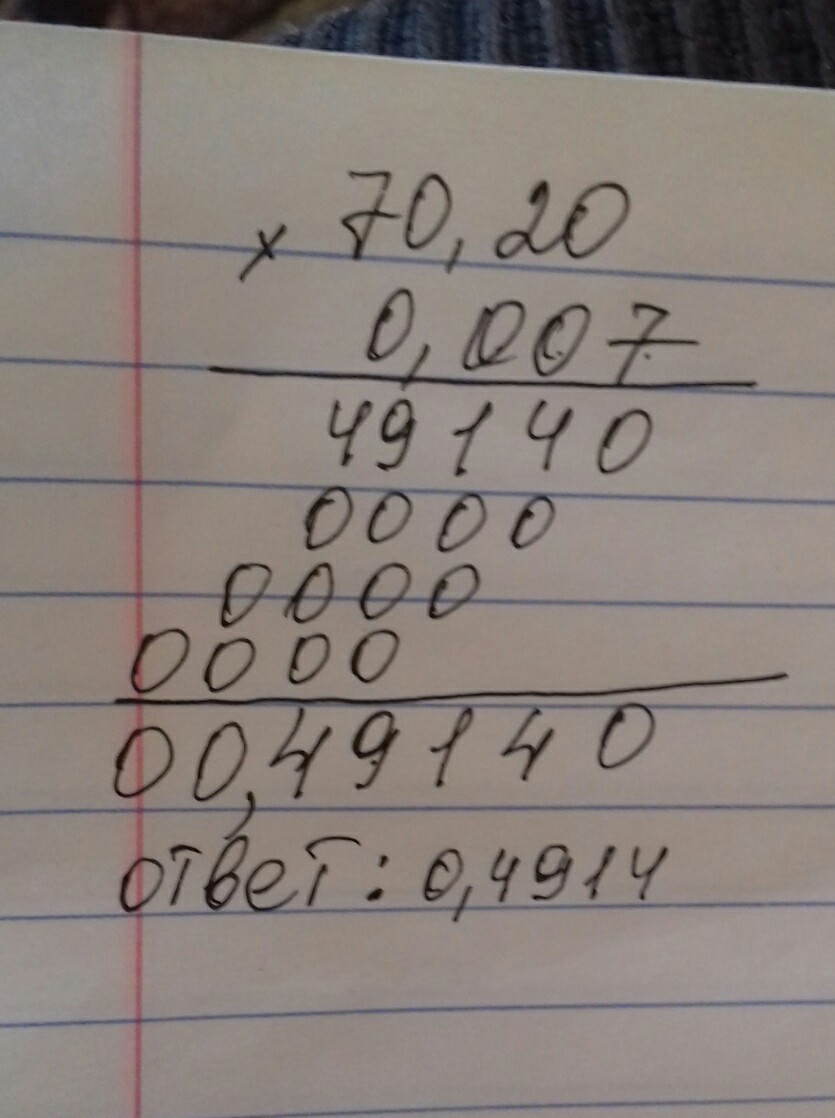 70,20
× 0,007
49140
0000
0000
0000
00,49140
ответ: 0,4914